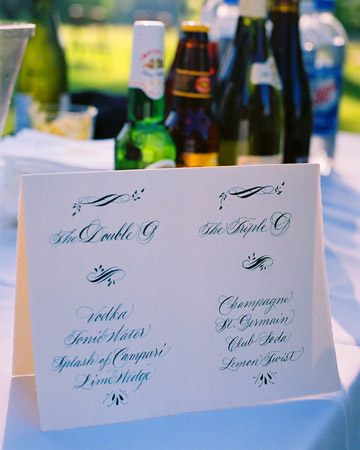 The Double G
Vodka
Tonic Water
Splash of Campari
Lime Wedge
The Triple G
Champagne
St. Germain
Club Soda
Lemon Twist